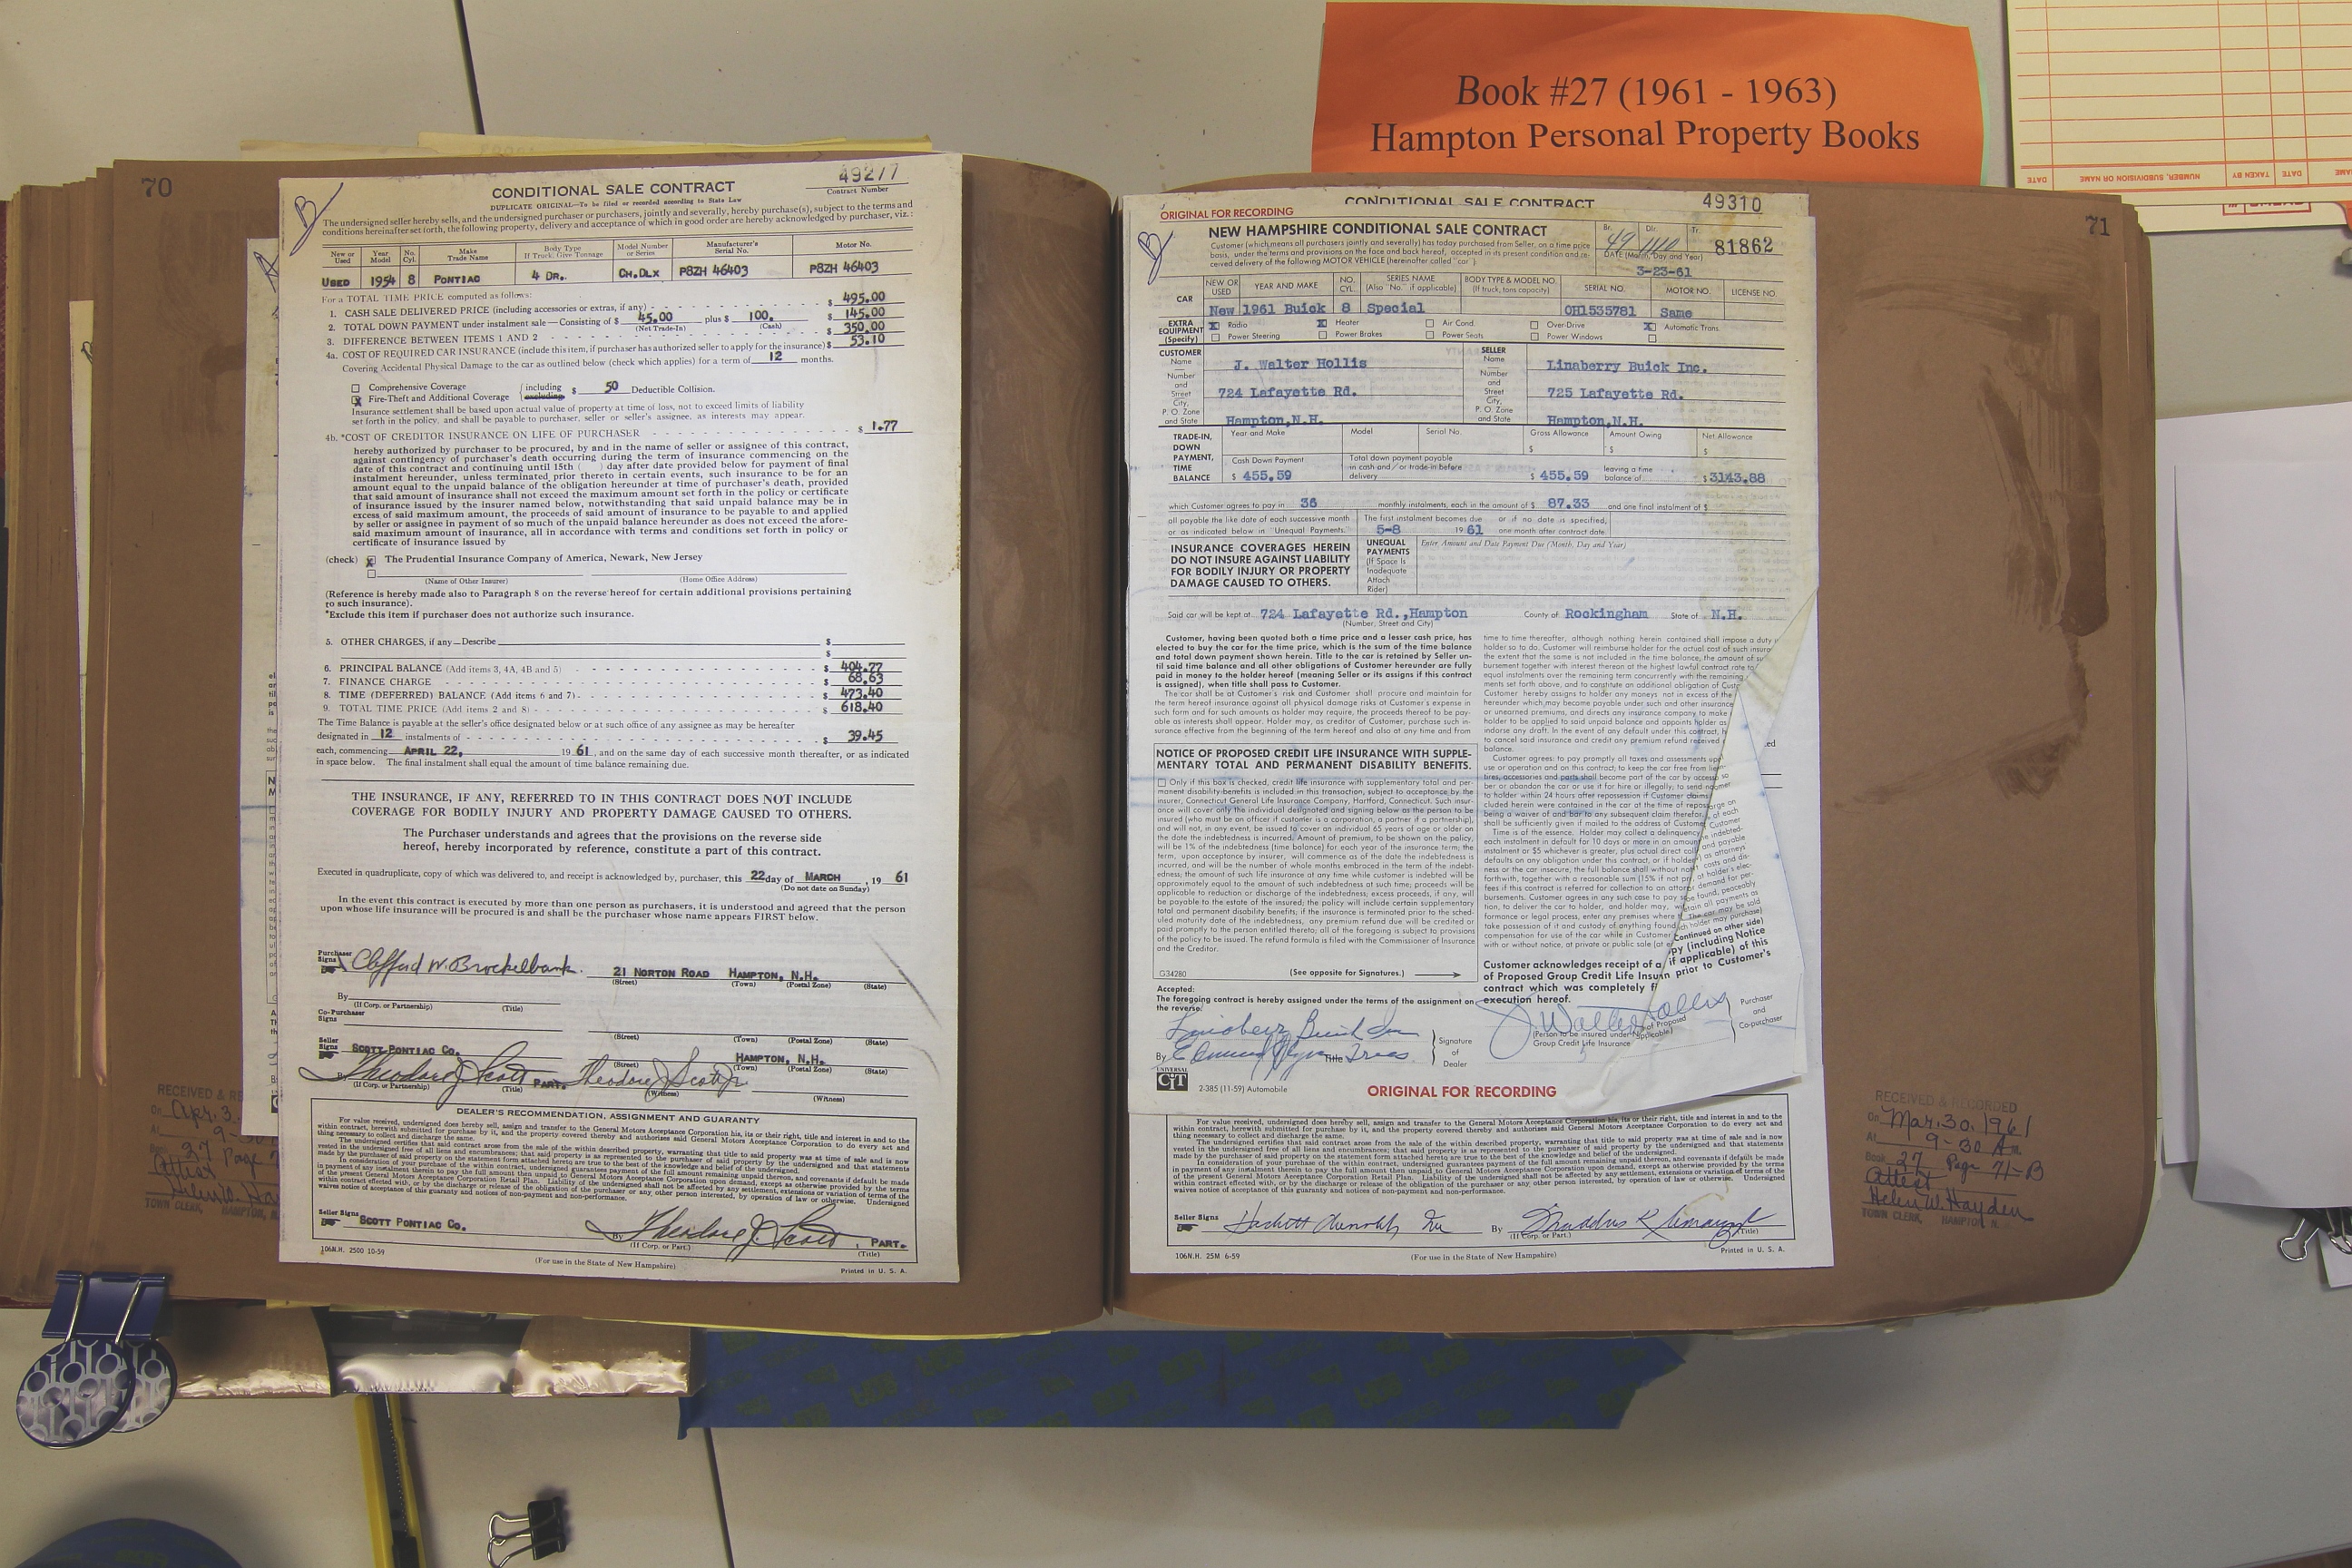 Book #27 (1961 - 1963)
Hampton Personal Property Books
70
B
49277
Contract Number
CONDITIONAL SALE CONTRACT
DUPLICATE ORIGINAL—To be filed or recorded according to State Law
The undersigned seller hereby sells, and the undersigned purchaser or purchasers, jointly and severally, hereby purchase(s), subject to the terms and
conditions hereinafter set forth, the following property, delivery and acceptance of which in good order are hereby acknowledged by purchaser, viz.:
New or Used Year Model No. Cyl. Make Trade Name Body Type If Truck, Give Tonnage Model Number or Series Manufacturer's Serial No. Motor No.
USED 1954 8 PONTIAC 4 DR. CH.DLX P8ZH 46403 P8ZH 46403
For a TOTAL TIME PRICE computed as follows:
1. CASH SALE DELIVERED PRICE (including accessories or extras, if any) $ 495.00
2. TOTAL DOWN PAYMENT under instalment sale—Consisting of $ 45.00 plus $ 100. $ 145.00
(Net Trade-In) (Cash)
3. DIFFERENCE BETWEEN ITEMS 1 AND 2 $ 350.00
4a. COST OF REQUIRED CAR INSURANCE (include this item, if purchaser has authorized seller to apply for the insurance) $ 53.10
Covering Accidental Physical Damage to the car as outlined below (check which applies) for a term of 12 months.
Comprehensive Coverage
Fire-Theft and Additional Coverage including excluding $ 50 Deductible Collision.
Insurance settlement shall be based upon actual value of property at time of loss, not to exceed limits of liability
set forth in the policy, and shall be payable to purchaser, seller or seller's assignee, as interests may appear.
4b. *COST OF CREDITOR INSURANCE ON LIFE OF PURCHASER $ 1.77
hereby authorized by purchaser to be procured, by and in the name of seller or assignee of this contract,
against contingency of purchaser's death occurring during the term of insurance commencing on the
date of this contract and continuing until 15th ( ) day after date provided below for payment of final
instalment hereunder, unless terminated prior thereto in certain events, such insurance to be for an
amount equal to the unpaid balance of the obligation hereunder at time of purchaser's death, provided
that said amount of insurance shall not exceed the maximum amount set forth in the policy or certificate
of insurance issued by the insurer named below, notwithstanding that said unpaid balance may be in
excess of said maximum amount, the proceeds of said amount of insurance to be payable to and applied
by seller or assignee in payment of so much of the unpaid balance hereunder as does not exceed the afore-
said maximum amount of insurance, all in accordance with terms and conditions set forth in policy or
certificate of insurance issued by
(check) X The Prudential Insurance Company of America, Newark, New Jersey
(Name of Other Insurer) (Home Office Address)
(Reference is hereby made also to Paragraph 8 on the reverse hereof for certain additional provisions pertaining
to such insurance).
*Exclude this item if purchaser does not authorize such insurance.
5. OTHER CHARGES, if any—Describe $
$
6. PRINCIPAL BALANCE (Add items 3, 4A, 4B and 5) $ 404.77
7. FINANCE CHARGE $ 68.63
8. TIME (DEFERRED) BALANCE (Add items 6 and 7) $ 473.40
9. TOTAL TIME PRICE (Add items 2 and 8) $ 618.40
The Time Balance is payable at the seller's office designated below or at such office of any assignee as may be hereafter
designated in 12 instalments of $ 39.45
each, commencing APRIL 22, 19 61, and on the same day of each successive month thereafter, or as indicated
in space below. The final instalment shall equal the amount of time balance remaining due.
THE INSURANCE, IF ANY, REFERRED TO IN THIS CONTRACT DOES NOT INCLUDE
COVERAGE FOR BODILY INJURY AND PROPERTY DAMAGE CAUSED TO OTHERS.
The Purchaser understands and agrees that the provisions on the reverse side
hereof, hereby incorporated by reference, constitute a part of this contract.
Executed in quadruplicate, copy of which was delivered to, and receipt is acknowledged by, purchaser, this 22 day of MARCH, 19 61
(Do not date on Sunday)
In the event this contract is executed by more than one person as purchasers, it is understood and agreed that the person
upon whose life insurance will be procured is and shall be the purchaser whose name appears FIRST below.
Purchaser Signs Clifford W. Brockelbank 21 NORTON ROAD HAMPTON, N.H.
(Street) (Town) (Postal Zone) (State)
By
(If Corp. or Partnership) (Title)
Co-Purchaser Signs
(Street) (Town) (Postal Zone) (State)
Seller Signs SCOTT PONTIAC CO. HAMPTON, N.H.
(Street) (Town) (Postal Zone) (State)
By Theodore J. Scott PART. Theodore J Scott Jr
(If Corp. or Partnership) (Title) (Witness) (Witness)
DEALER'S RECOMMENDATION, ASSIGNMENT AND GUARANTY
For value received, undersigned does hereby sell, assign and transfer to the General Motors Acceptance Corporation his, its or their right, title and interest in and to the
within contract, herewith submitted for purchase by it, and the property covered thereby and authorizes said General Motors Acceptance Corporation to do every act and
thing necessary to collect and discharge the same.
The undersigned certifies that said contract arose from the sale of the within described property, warranting that title to said property was at time of sale and is now
vested in the undersigned free of all liens and encumbrances; that said property is as represented to the purchaser of said property by the undersigned and that statements
made by the purchaser of said property on the statement form attached hereto are true to the best of the knowledge and belief of the undersigned.
In consideration of your purchase of the within contract, undersigned guarantees payment of the full amount remaining unpaid thereon, and covenants if default be made
in payment of any instalment therein to pay the full amount then unpaid to General Motors Acceptance Corporation upon demand, except as otherwise provided by the terms
of the present General Motors Acceptance Corporation Retail Plan. Liability of the undersigned shall not be affected by any settlement, extension or variation of terms of the
within contract effected with, or by the discharge or release of the obligation of the purchaser or any other person interested, by operation of law or otherwise. Undersigned
waives notice of acceptance of this guaranty and notices of non-payment and non-performance.
Seller Signs SCOTT PONTIAC CO. By Theodore J. Scott, PART.
(If Corp. or Part.) (Title)
106N.H. 2500 10-59 (For use in the State of New Hampshire) Printed in U. S. A.
RECEIVED & RE
On Apr. 3
At 9-30
27 Page 7
Attest
Helen W. Hay
TOWN CLERK, HAMPTON, N.
71
B
CONDITIONAL SALE CONTRACT 49310
ORIGINAL FOR RECORDING
NEW HAMPSHIRE CONDITIONAL SALE CONTRACT
Customer (which means all purchasers jointly and severally) has today purchased from Seller, on a time price
basis, under the terms and provisions on the face and back hereof, accepted in its present condition and re-
ceived delivery of the following MOTOR VEHICLE (hereinafter called "car")
Br. 49 Dlr. 1110 Tr. 81862
DATE (Month, Day and Year)
3-23-61
CAR NEW OR USED YEAR AND MAKE NO. CYL. SERIES NAME (Also "No." if applicable) BODY TYPE & MODEL NO. (If truck, tons capacity) SERIAL NO. MOTOR NO. LICENSE NO.
New 1961 Buick 8 Special OH1535781 Same
EXTRA EQUIPMENT (Specify) X Radio X Heater Air Cond. Over-Drive X Automatic Trans.
Power Steering Power Brakes Power Seats Power Windows
CUSTOMER Name J. Walter Hollis SELLER Name Linaberry Buick Inc.
Number and Street 724 Lafayette Rd. Number and Street 725 Lafayette Rd.
City, P. O. Zone and State Hampton,N.H. City, P. O. Zone and State Hampton,N.H.
TRADE-IN, DOWN PAYMENT, TIME BALANCE
Year and Make Model Serial No. Gross Allowance $ Amount Owing $ Net Allowance $
Cash Down Payment $ 455.59 Total down payment payable in cash and/or trade-in before delivery $ 455.59 leaving a time balance of $ 3143.88
which Customer agrees to pay in 36 monthly instalments, each in the amount of $ 87.33 and one final instalment of $
all payable the like date of each successive month or as indicated below in "Unequal Payments." The first instalment becomes due 5-8 19 61 or if no date is specified, one month after contract date.
INSURANCE COVERAGES HEREIN
DO NOT INSURE AGAINST LIABILITY
FOR BODILY INJURY OR PROPERTY
DAMAGE CAUSED TO OTHERS.
UNEQUAL PAYMENTS (If Space Is Inadequate Attach Rider)
Enter Amount and Date Payment Due (Month, Day and Year)
Said car will be kept at 724 Lafayette Rd.,Hampton County of Rockingham State of N.H.
(Number, Street and City)
Customer, having been quoted both a time price and a lesser cash price, has
elected to buy the car for the time price, which is the sum of the time balance
and total down payment shown herein. Title to the car is retained by Seller un-
til said time balance and all other obligations of Customer hereunder are fully
paid in money to the holder hereof (meaning Seller or its assigns if this contract
is assigned), when title shall pass to Customer.
The car shall be at Customer's risk and Customer shall procure and maintain for
the term hereof insurance against all physical damage risks at Customer's expense in
such form and for such amounts as holder may require, the proceeds thereof to be pay-
able as interests shall appear. Holder may, as creditor of Customer, purchase such in-
surance effective from the beginning of the term hereof and also at any time and from
NOTICE OF PROPOSED CREDIT LIFE INSURANCE WITH SUPPLE-
MENTARY TOTAL AND PERMANENT DISABILITY BENEFITS.
Only if this box is checked, credit life insurance with supplementary total and per-
manent disability benefits is included in this transaction, subject to acceptance by the
insurer, Connecticut General Life Insurance Company, Hartford, Connecticut. Such insur-
ance will cover only the individual designated and signing below as the person to be
insured (who must be an officer if customer is a corporation, a partner if a partnership),
and will not, in any event, be issued to cover an individual 65 years of age or older on
the date the indebtedness is incurred. Amount of premium, to be shown on the policy,
will be 1% of the indebtedness (time balance) for each year of the insurance term; the
term, upon acceptance by insurer, will commence as of the date the indebtedness is
incurred, and will be the number of whole months embraced in the term of the indebt-
edness; the amount of such life insurance at any time while customer is indebted will be
approximately equal to the amount of such indebtedness at such time; proceeds will be
applicable to reduction or discharge of the indebtedness; excess proceeds, if any, will
be payable to the estate of the insured; the policy will include certain supplementary
total and permanent disability benefits; if the insurance is terminated prior to the sched-
uled maturity date of the indebtedness, any premium refund due will be credited or
paid promptly to the person entitled thereto; all of the foregoing is subject to provisions
of the policy to be issued. The refund formula is filed with the Commissioner of Insurance
and the Creditor.
G34280 (See opposite for Signatures.)
time to time thereafter, although nothing herein contained shall impose a duty
holder so to do. Customer will reimburse holder for the actual cost of such insur
the extent that the same is not included in the time balance, the amount of su
bursement together with interest thereon at the highest lawful contract rate to
equal instalments over the remaining term concurrently with the remaining
ments set forth above, and to constitute an additional obligation of Cust
Customer hereby assigns to holder any moneys not in excess of the
hereunder which may become payable under such and other insurance
or unearned premiums, and directs any insurance company to make
holder to be applied to said unpaid balance and appoints holder as
indorse any draft. In the event of any default under this contract, h
to cancel said insurance and credit any premium refund received
balance.
Customer agrees: to pay promptly all taxes and assessments upo
use or operation and on this contract; to keep the car free from lien
tires, accessories and parts shall become part of the car by accessi
ber or abandon the car or use it for hire or illegally; to send
to holder within 24 hours after repossession if Customer claims
cluded herein were contained in the car at the time of repos
being a waiver of and bar to any subsequent claim therefor
shall be sufficiently given if mailed to the address of Custome
Time is of the essence. Holder may collect a delinquency
each instalment in default for 10 days or more in an amount
instalment or $5 whichever is greater, plus actual direct col
defaults on any obligation under this contract, or if holder
ness or the car insecure, the full balance shall without not
forthwith, together with a reasonable sum (15% if not
fees if this contract is referred for collection to an attor
bursements. Customer agrees in any such case to pay
tion, to deliver the car to holder, and holder may, w
formance or legal process, enter any premises where
take possession of it and custody of anything found
compensation for use of the car while in Customer
with or without notice, at private or public sale (at
(Continued on other side)
Customer acknowledges receipt of a
py (including Notice
of Proposed Group Credit Life Insu
if applicable) of this
contract which was completely f
prior to Customer's
execution hereof.
Accepted:
The foregoing contract is hereby assigned under the terms of the assignment on
the reverse.
By Title
Signature of Dealer
J. Walter Hollis
(Person to be insured under
Group Credit Life Insurance
Purchaser and Co-purchaser
UNIVERSAL CIT 2-385 (11-59) Automobile
ORIGINAL FOR RECORDING
For value received, undersigned does hereby sell, assign and transfer to the General Motors Acceptance Corporation his, its or their right, title and interest in and to the
within contract, herewith submitted for purchase by it, and the property covered thereby and authorizes said General Motors Acceptance Corporation to do every act and
thing necessary to collect and discharge the same.
The undersigned certifies that said contract arose from the sale of the within described property, warranting that title to said property was at time of sale and is now
vested in the undersigned free of all liens and encumbrances; that said property is as represented to the purchaser of said property by the undersigned and that statements
made by the purchaser of said property on the statement form attached hereto are true to the best of the knowledge and belief of the undersigned.
In consideration of your purchase of the within contract, undersigned guarantees payment of the full amount remaining unpaid thereon, and covenants if default be made
in payment of any instalment therein to pay the full amount then unpaid to General Motors Acceptance Corporation upon demand, except as otherwise provided by the terms
of the present General Motors Acceptance Corporation Retail Plan. Liability of the undersigned shall not be affected by any settlement, extension or variation of terms of the
within contract effected with, or by the discharge or release of the obligation of the purchaser or any other person interested, by operation of law or otherwise. Undersigned
waives notice of acceptance of this guaranty and notices of non-payment and non-performance.
Seller Signs By
(If Corp. or Part.) (Title)
106N.H. 25M 6-59 (For use in the State of New Hampshire) Printed in U. S. A.
RECEIVED & RECORDED
On Mar. 30, 1961
At 9-30 A
Book 27 Page 71-B
Attest
Helen W. Hayden
TOWN CLERK, HAMPTON, N.
DATE TAKEN BY DATE NUMBER, SUBDIVISION OR NAME